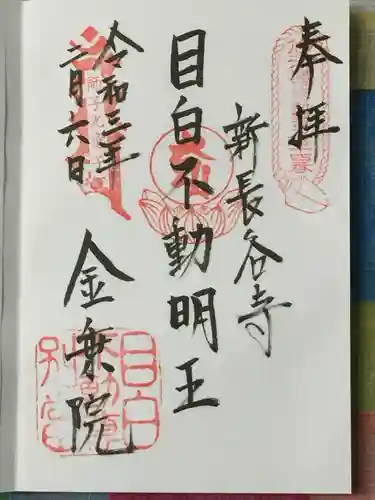 奉拝
新長谷寺
目白不動明王
令和三年
二月六日
金乗院
目白
不動尊
別当